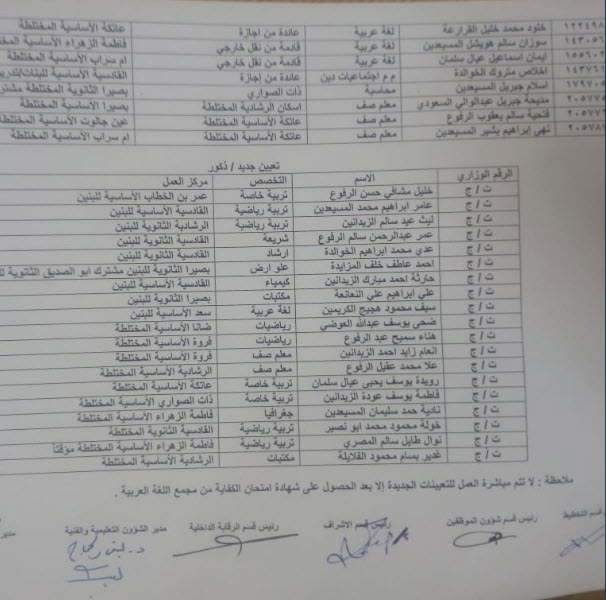 ١٢٢٤٩٨ خلود محمد خليل القرارعة لغة عربية عائدة من اجازة عاتكة الأساسية المختلطة
١٤٣٠٥٦ سوزان سالم هويشل المسيعدين لغة عربية قادمة من نقل خارجي فاطمة الزهراء الأساسية المخت
١٥٥٦٠٢ ايمان اسماعيل عيال سلمان لغة عربية قادمة من نقل خارجي ام سراب الأساسية المختلطة
١٤٣٧٦٢ اخلاص متروك الخوالدة م م اجتماعيات دين عائدة من اجازة القادسية الأساسية للبنات/تدريس
١٧٩٧٠٥ اسلام جبريل المسيعدين محاسبة ذات الصواري بصيرا الثانوية المختلطة مشتر
٢٠٥٧٧٦ مديحة جبريل عبدالوالي السعودي معلم صف اسكان الرشادية المختلطة بصيرا الأساسية المختلطة
٢٠٥٧٧ فتحية سالم يعقوب الرفوع معلم صف عاتكة الأساسية المختلطة عين جالوت الأساسية المختلطة
٢٠٥٧٨ نهى إبراهيم بشير المسيعدين معلم صف عاتكة الأساسية المختلطة ام سراب الأساسية المختلطة
تعيين جديد / ذكور
الرقم الوزاري الاسم التخصص مركز العمل
ت / ج خليل مشافي حسن الرفوع تربية خاصة عمر بن الخطاب الأساسية للبنين
ت / ج عامر ابراهيم محمد المسيعدين تربية رياضية القادسية الأساسية للبنين
ت / ج ليث عيد سالم الزيدانين تربية رياضية الرشادية الثانوية للبنين
ت / ج عمر عبدالرحمن سالم الرفوع شريعة القادسية الثانوية للبنين
ت / ج عدي محمد ابراهيم الخوالدة ارشاد القادسية الثانوية للبنين
ت / ج احمد عاطف خلف المزايدة علو ارض بصيرا الثانوية للبنين مشترك ابو الصديق الثانوية لل
ت / ج حارثة احمد مبارك الزيدانين كيمياء القادسية الأساسية للبنين
ت / ج علي ابراهيم علي النعانعة مكتبات بصيرا الثانوية للبنين
ت / ج سيف محمود هجيج الكريمين لغة عربية سعد الأساسية للبنين
ت / ج ضحى يوسف عبدالله العوضي رياضيات ضانا الأساسية المختلطة
ت / ج هناء سميح عبد الرفوع رياضيات فروة الأساسية المختلطة
ت / ج انعام زايد احمد الزيدانين معلم صف فروة الأساسية المختلطة
ت / ج علا محمد عقيل الرفوع معلم صف الرشادية الأساسية المختلطة
ت / ج رويدة يوسف يحيى عيال سلمان تربية خاصة عاتكة الأساسية المختلطة
ت / ج فاطمة يوسف عودة الزيدانين تربية خاصة ذات الصواري الأساسية المختلطة
ت / ج نادية حمد سليمان المسيعدين جغرافيا فاطمة الزهراء الأساسية المختلطة
ت / ج خولة محمود محمد ابو نصير تربية رياضية القادسية الثانوية المختلطة
ت / ج نوال طايل سالم المصري تربية رياضية فاطمة الزهراء الأساسية المختلطة مؤقتاً
ت / ج غدير بسام محمود القلايلة مكتبات الرشادية الأساسية المختلطة
ملاحظة : لا تتم مباشرة العمل للتعيينات الجديدة إلا بعد الحصول على شهادة امتحان الكفاية من مجمع اللغة العربية .
قسم التخطيط رئيس قسم شؤون الموظفين رئيس قسم الاشراف رئيس قسم الرقابة الداخلية مدير الشؤون التعليمية والفنية مدير